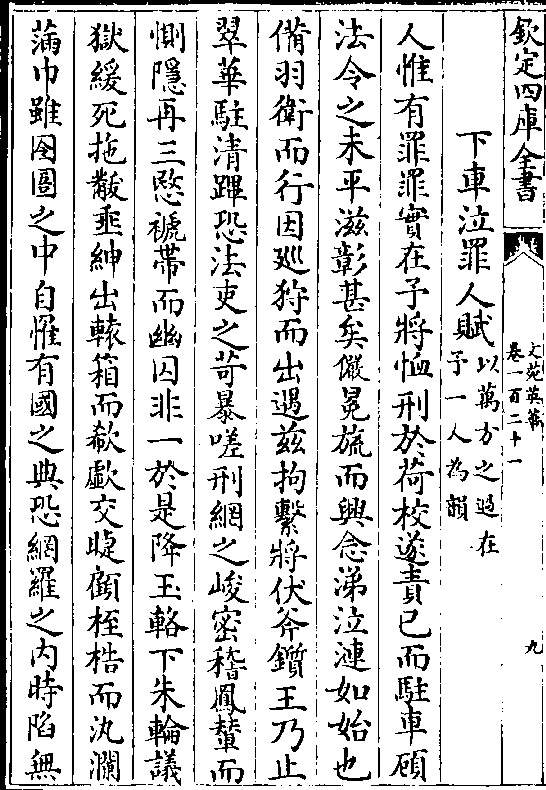 欽定四庫全書
文苑英華
卷一百二十一
九
下車泣罪人賦以萬方之過在
予一人為韻
人惟有罪罪實在予將恤刑於荷校遂責已而駐車顧
法令之未平滋彰甚矣儼冕旒而興念涕泣漣如始也
備羽衛而行因廵狩而出遇兹拘繫將伏斧鑕王乃止
翠華駐清蹕恐法吏之苛暴嗟刑網之峻密稽鳳輦而
惻隱再三愍褫帶而幽囚非一於是降玉輅下朱輪議
獄緩死拖黻垂紳出轅箱而欷歔交睫顧桎梏而汍瀾
蒲巾雖囹圄之中自惟有國之典恐網羅之内時陷無